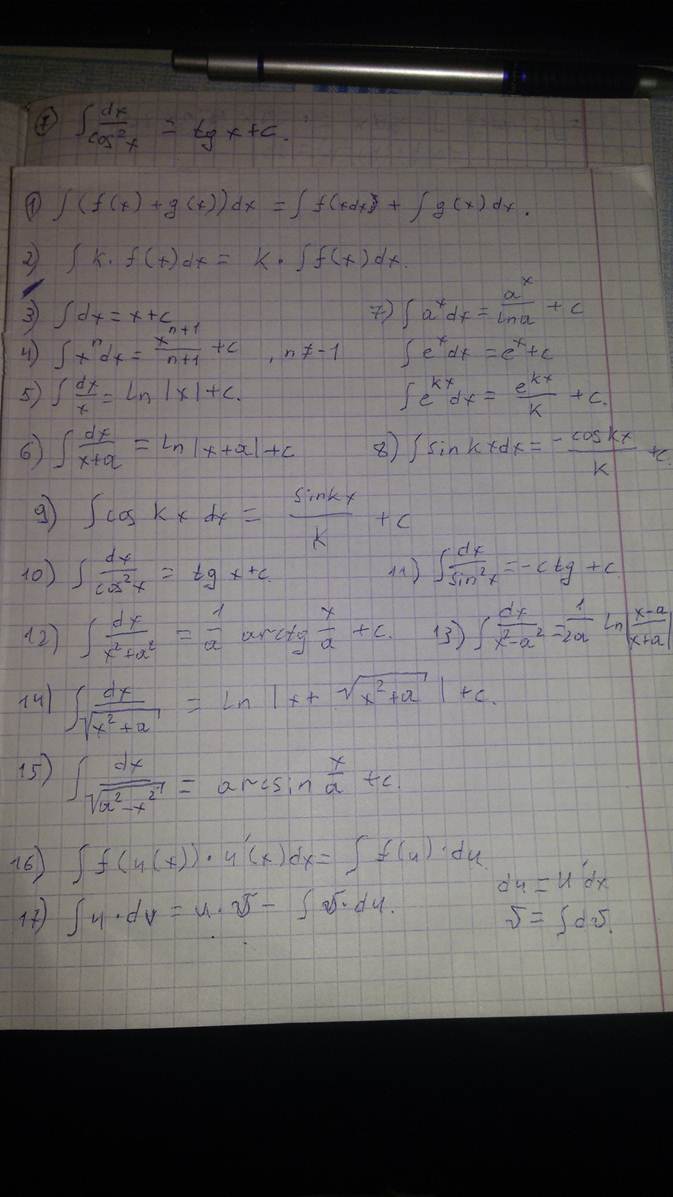 1) ∫ dx/cos²x = tg x + c.
1) ∫(f(x) + g(x))dx = ∫f(xdx) + ∫g(x)dx.
2) ∫k·f(x)dx = k·∫f(x)dx.
3) ∫dx = x + c 7) ∫aˣdx = aˣ/lna + c
4) ∫xⁿdx = xⁿ⁺¹/n+1 + c , n ≠ -1 ∫eˣdx = eˣ + c
5) ∫dx/x = ln|x| + c. ∫eᵏˣdx = eᵏˣ/k + c.
6) ∫dx/x+a = ln|x+a| + c 8) ∫sinkxdx = -coskx/k + c
9) ∫cos kx dx = sinkx/k + c
10) ∫dx/cos²x = tg x + c. 11) ∫dx/sin²x = -ctg + c
12) ∫dx/x²+a² = 1/a arctg x/a + c. 13) ∫dx/x²-a² = 1/2a ln|x-a/x+a|
14) ∫dx/√x²+a = ln|x + √x²+a| + c.
15) ∫dx/√a²-x² = arcsin x/a + c.
16) ∫f(u(x))·u'(x)dx = ∫f(u)·du
du = u'dx
17) ∫u·dv = u·v - ∫v·du.
v = ∫dv.